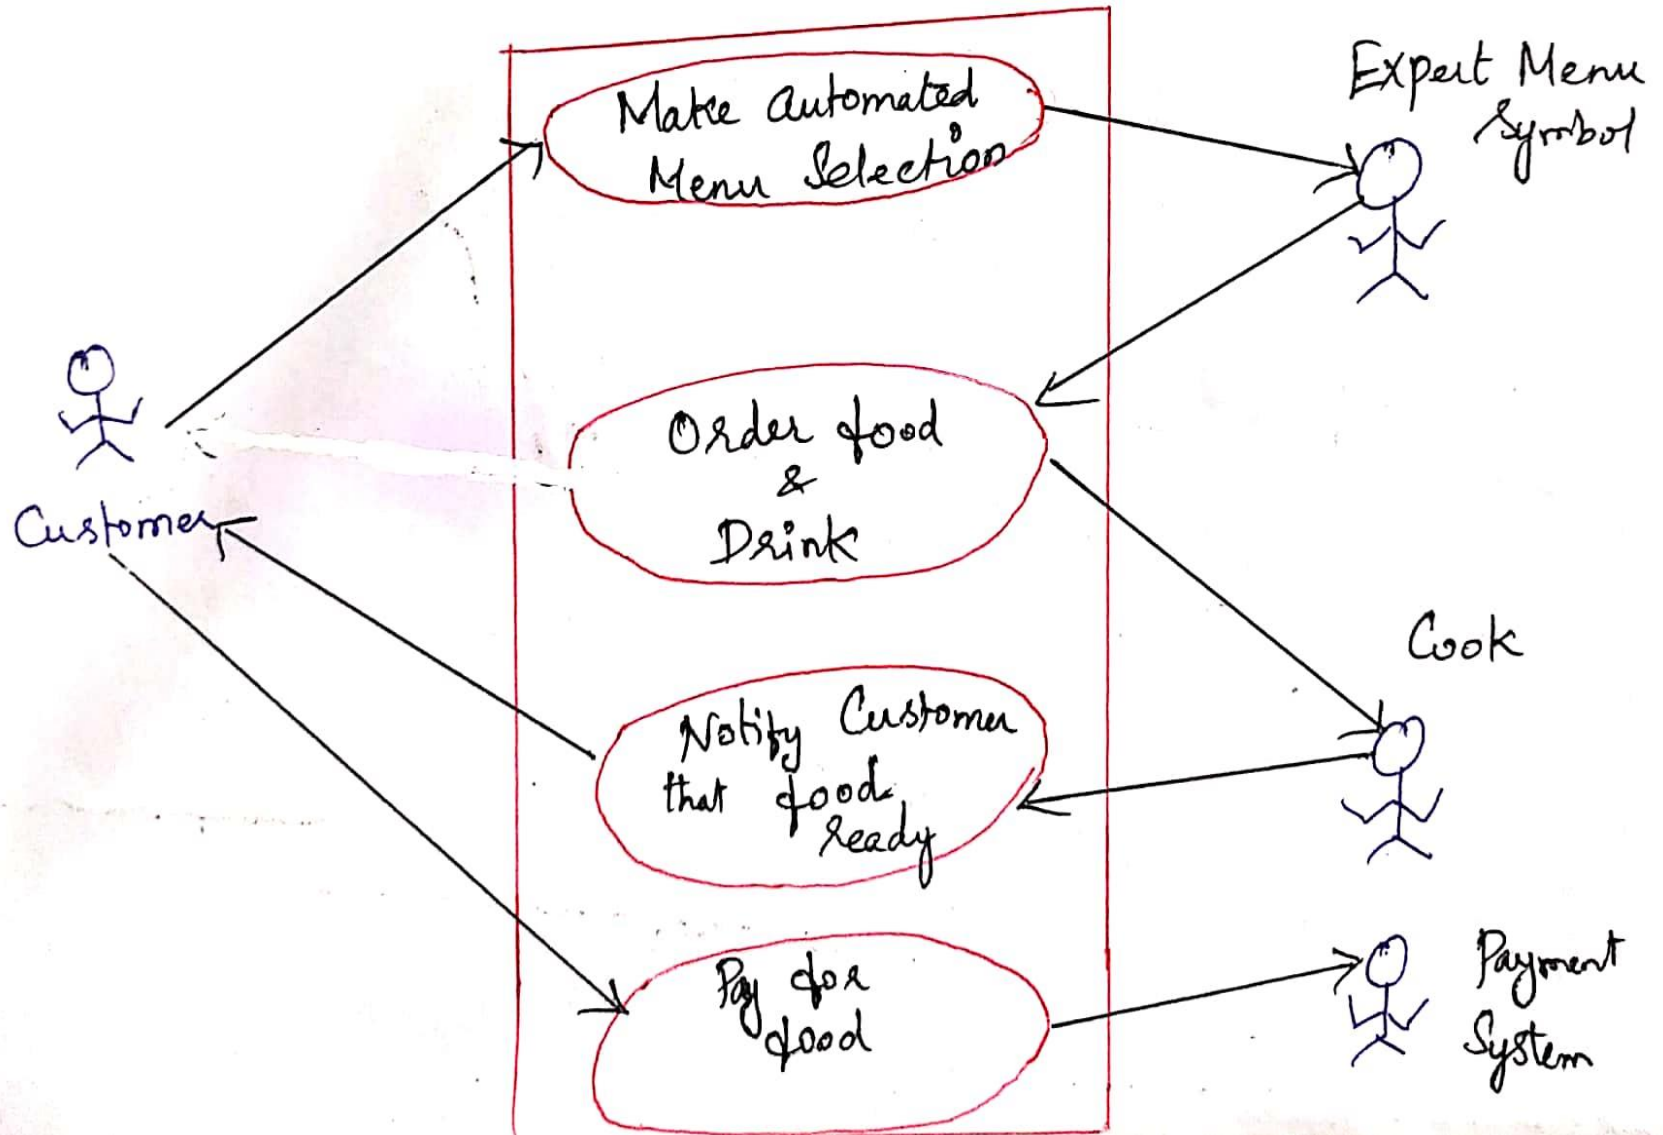 Make automated
Menu Selection
Expert Menu
Symbol
Customer
Order food
&
Drink
Notify Customer
that food
ready
Cook
Pay for
food
Payment
System